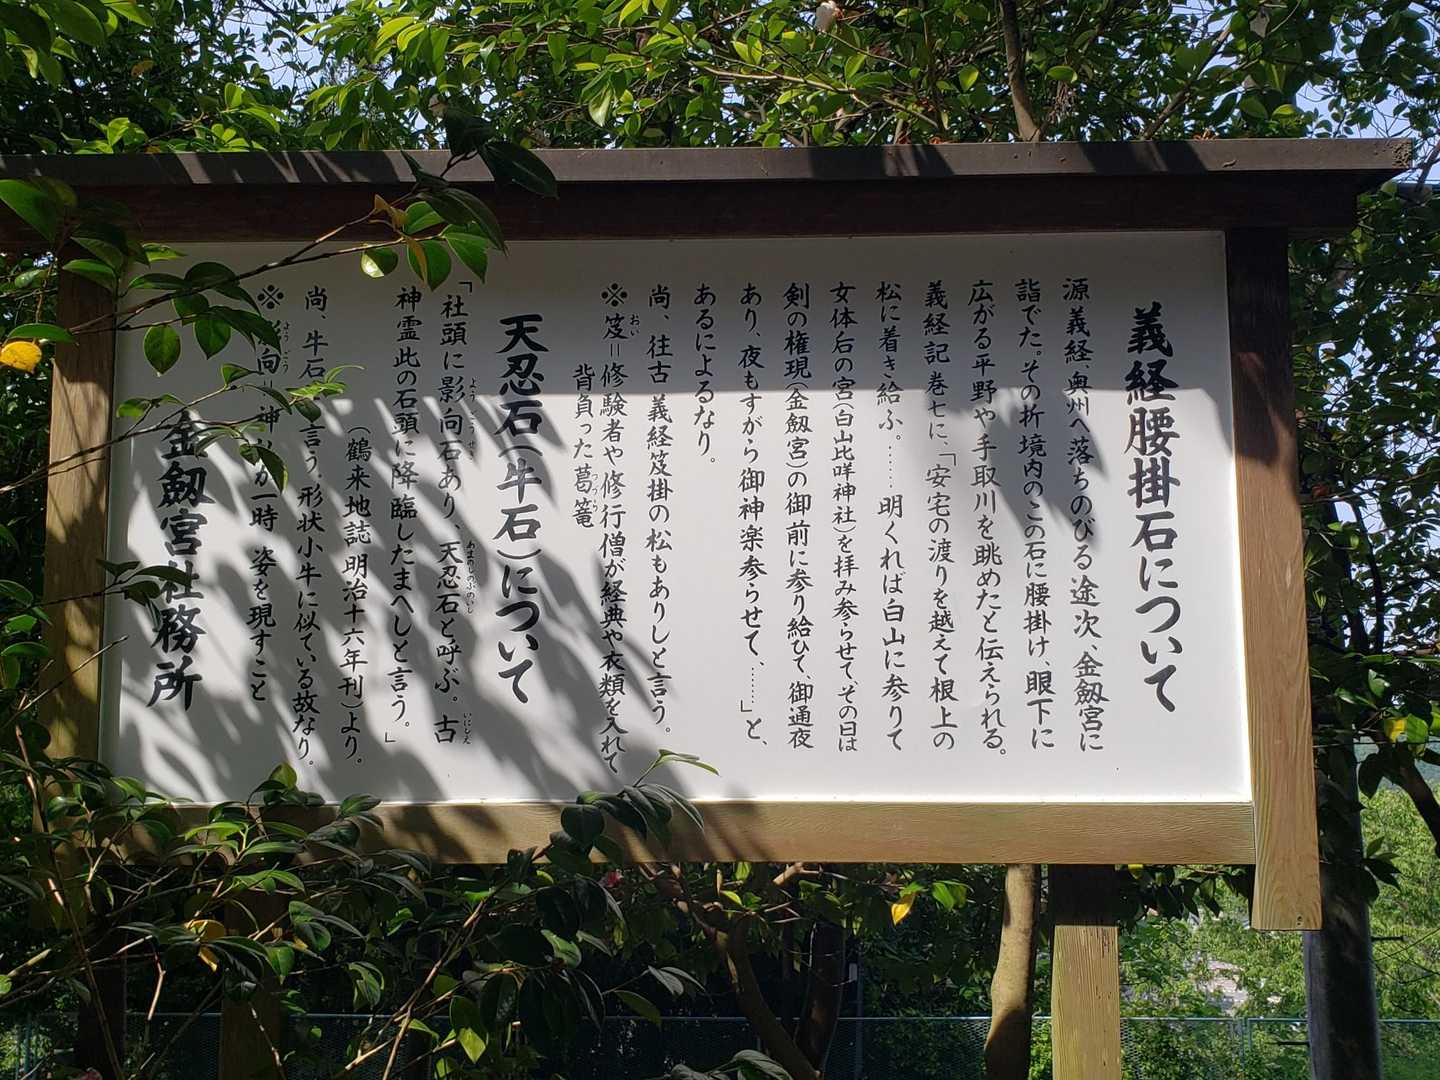 義経腰掛石について
源義経、奥州へ落ちのびる途次、金劔宮に
詣でた。その折境内のこの石に腰掛け、眼下に
広がる平野や手取川を眺めたと伝えられる。
義経記 巻七に、「安宅の渡りを越えて根上の
松に着き給ふ。……明くれば白山に参りて
女体后の宮(白山比咩神社)を拝み参らせて、その日は
剣の権現(金劔宮)の御前に参り給ひて、御通夜
あり、夜もすがら御神楽参らせて、……」と、
あるによるなり。
尚、往古 義経笈掛の松もありしと言う。
※笈=修験者や修行僧が経典や衣類を入れて
おい
背負った葛篭
つづら
天忍石(牛石)について
「社頭に影向石あり、天忍石と呼ぶ。古
ようごうせき
あまのしのぶのいし
いにしえ
神霊此の石頭に降臨したまへしと言う。」
(鶴来地誌 明治十六年刊)より。
尚、牛石 言う。形状小牛に似ている故なり。
※影向=神 が一時 姿を現すこと
ようごう
金劔宮社務所